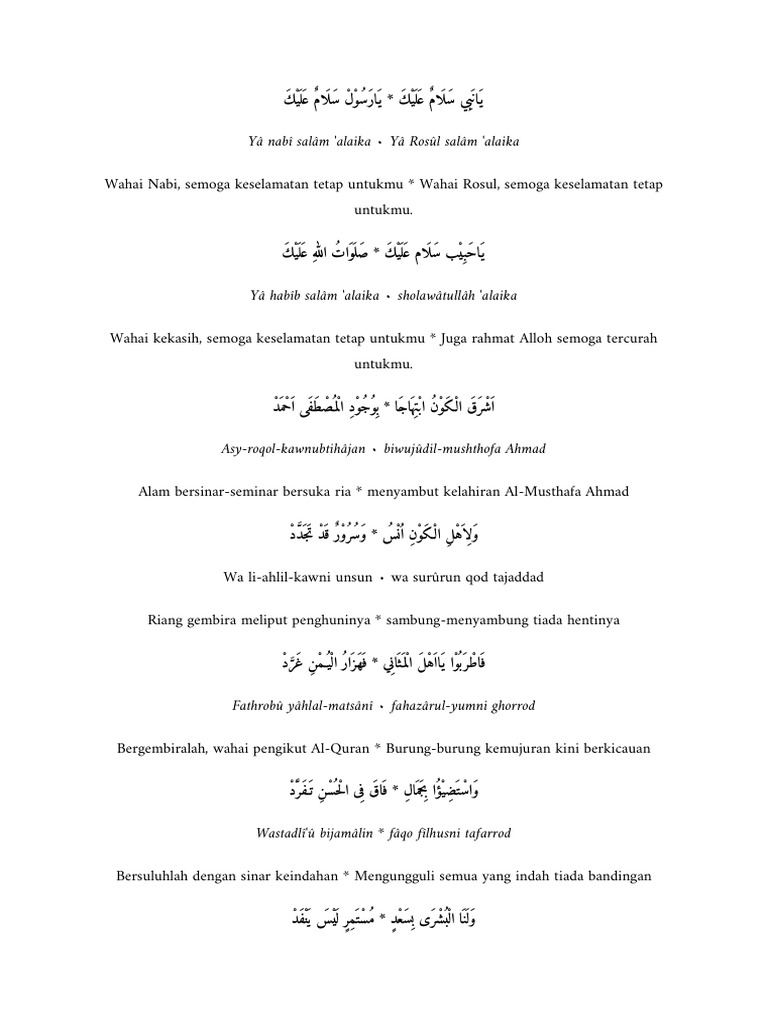 يَانَبِي سَلَامٌ عَلَيْكَ * يَارَسُوْلْ سَلَامٌ عَلَيْكَ
Yâ nabî salâm 'alaika • Yâ Rosûl salâm 'alaika
Wahai Nabi, semoga keselamatan tetap untukmu * Wahai Rosul, semoga keselamatan tetap
untukmu.
يَاحَبِيْب سَلَام عَلَيْكَ * صَلَوَاتُ اللهِ عَلَيْكَ
Yâ habîb salâm 'alaika • sholawâtullâh 'alaika
Wahai kekasih, semoga keselamatan tetap untukmu * Juga rahmat Alloh semoga tercurah
untukmu.
اَشْرَقَ الْكَوْنُ ابْتِهَاجَا * بِوُجُوْدِ الْمُصْطَفَى اَحْمَدْ
Asy-roqol-kawnubtihâjan • biwujûdil-mushthofa Ahmad
Alam bersinar-seminar bersuka ria * menyambut kelahiran Al-Musthafa Ahmad
وَلِاَهْلِ الْكَوْنِ اُنْسُ * وَسُرُوْرٌ قَدْ تَجَدَّدْ
Wa li-ahlil-kawni unsun • wa surûrun qod tajaddad
Riang gembira meliput penghuninya * sambung-menyambung tiada hentinya
فَاطْرَبُوْا يَااَهْلَ الْمَثَانِي * فَهَزَارُ الْيُمْنِ غَرَّدْ
Fathrobû yâhlal-matsânî • fahazârul-yumni ghorrod
Bergembiralah, wahai pengikut Al-Quran * Burung-burung kemujuran kini berkicauan
وَاسْتَضِيْؤُا بِجَمَالِ * فَاقَ فِى الْحُسْنِ تَفَرَّدْ
Wastadlî'û bijamâlin * fâqo filhusni tafarrod
Bersuluhlah dengan sinar keindahan * Mengungguli semua yang indah tiada bandingan
وَلَنَا الْبُشْرَى بِسَعْدٍ * مُسْتَمِرٍ لَيْسَ يَنْفَدْ